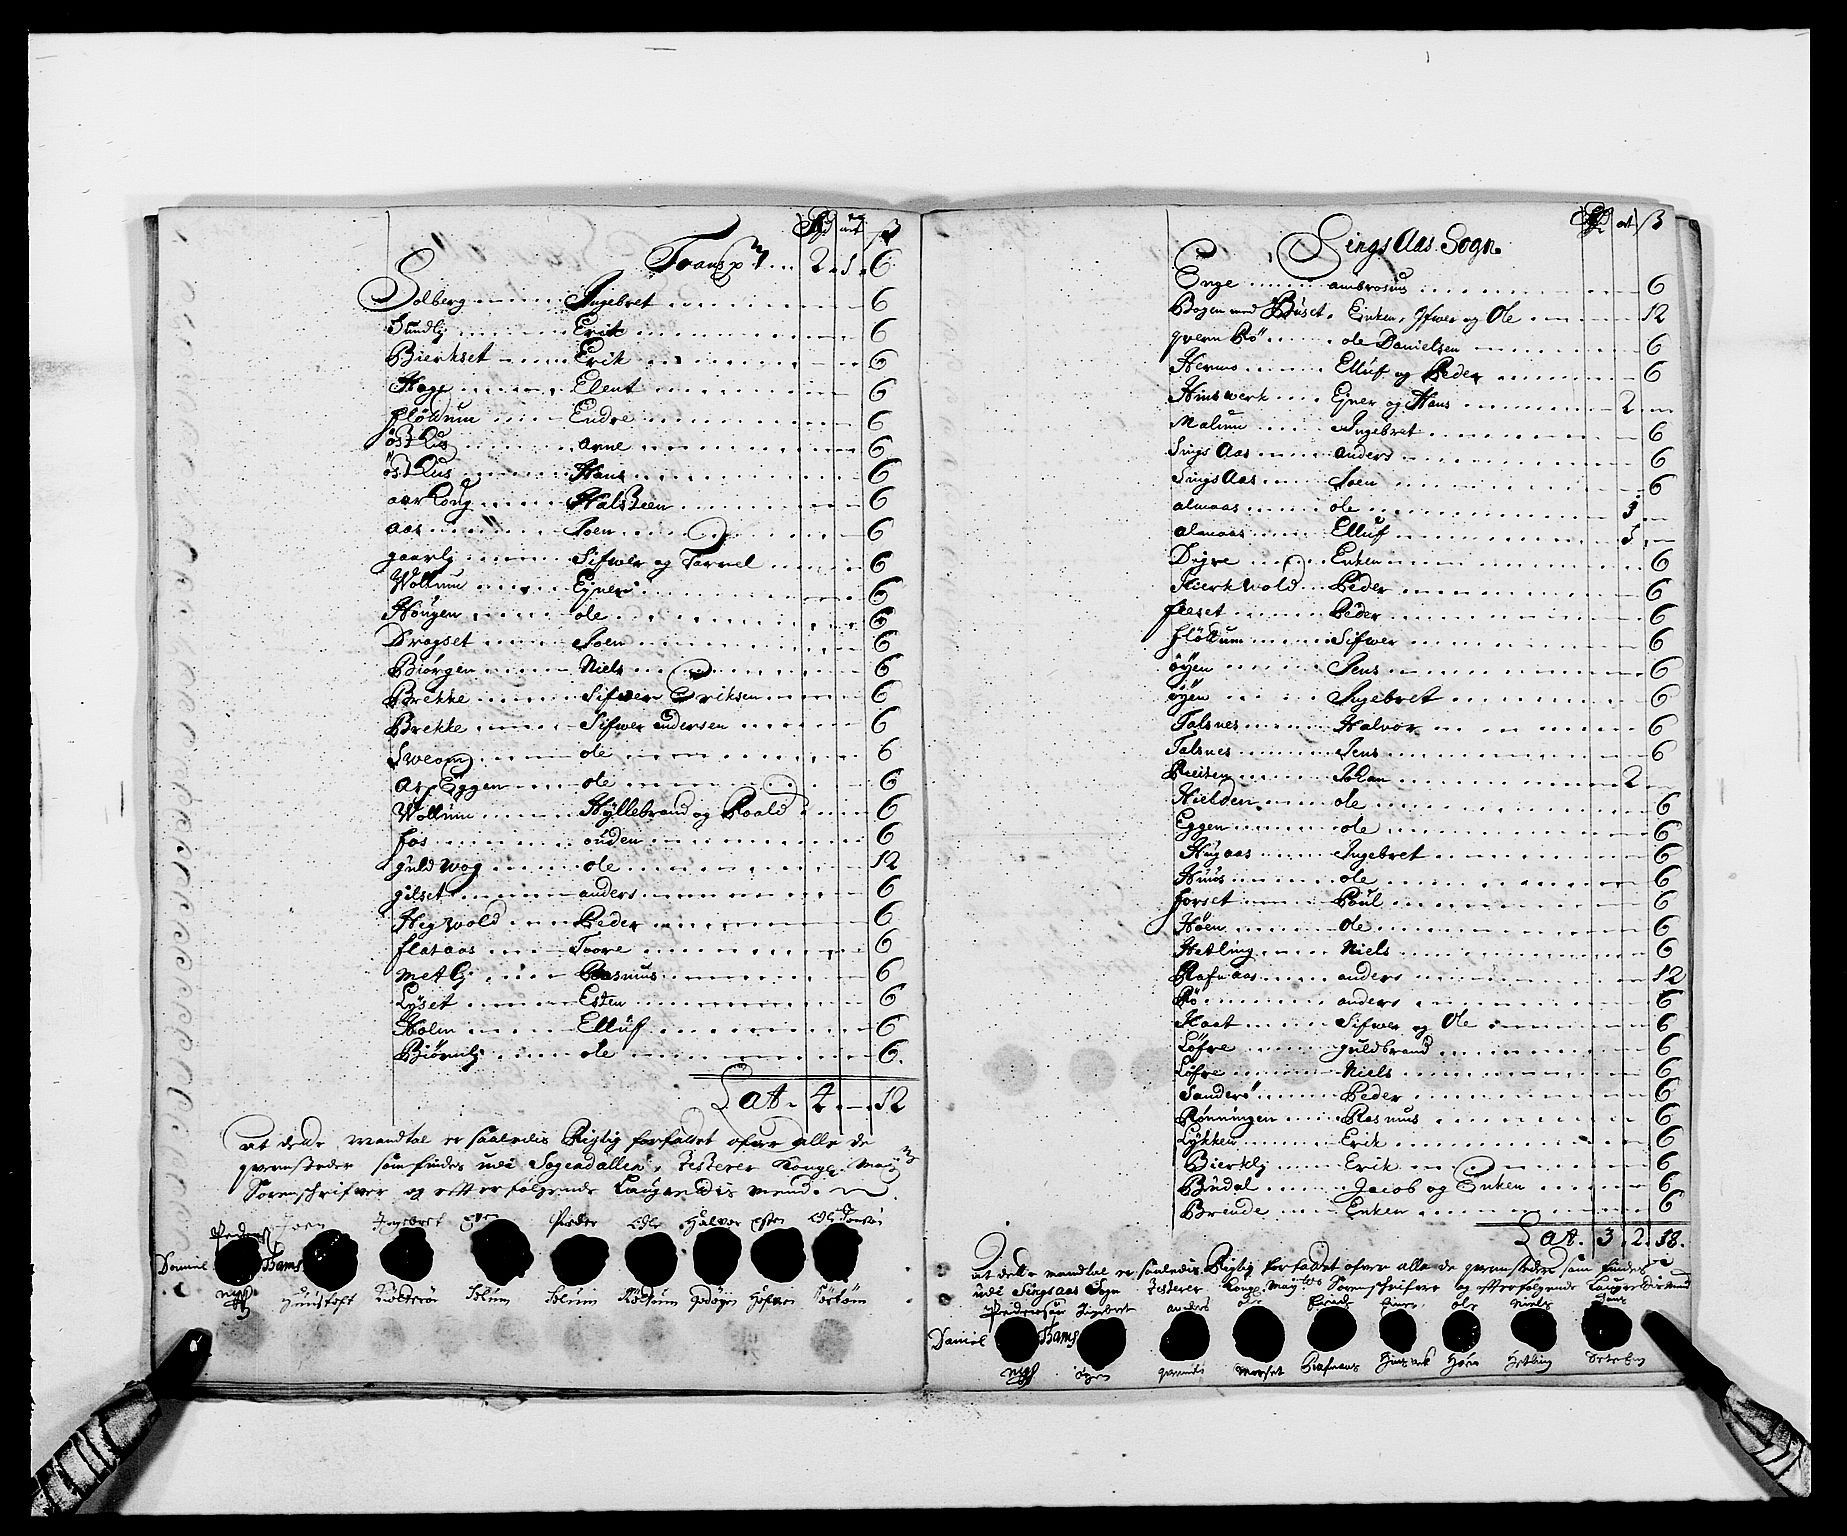 Rd ort ß
Transpt ... 2 . 1 . 6
Solberg Ingebret 6
Sundlj Erik 6
Bierkset Erik 6
Hage Elent 6
fløttum Endre 6
østhus arne 6
østhus Hans 6
aarhoug Halsteen 6
aas Joen 6
gaarlj Sifwer og Tarrel 6
Wollum Ejner 6
Hougen ole 6
Dragset Joen 6
Biørgen Niels 6
Brekke Sifwer Eriksen 6
Brekke Sifwer andersen 6
ole 6
Eggen ole 6
Wollum Hyllebrand og Roald 6
fos ouden 6
guldwog ole 12
gilset anders 6
Hegwold Peder 6
flataas Toore 6
metlj Rasmus 6
Lyset Esten 6
Holm Elluf 6
Biørnlj ole 6.
Lat. 4 . — . 12
at dette mandtal er saaledis Rigtig forfattet ofver alle de
qvernsteder som findes udi Sogendallen, Testerer Kongl. Mayts
Sorenschrifver og effterfølgende Laugrettis mend.
Pedersen Joen Ingebret Peder Ole Halvor Esten
Daniel Bams
Solum Solum

Rd ort ß
SingsAas Sogn
Enge ambrosius 6
Bogen med Buset Enken, Ifwer og Ole 12
qvern Rø ole Danielsen 6
Hermo Elluf og Peder 6
Hinswerk Ejner og Hans 2
Malum Ingebret 6
SingsAas anders 6
SingsAas Joen 6
almaas ole 3
almaas Elluf 1
Digre Enken 6
Kierkwold Peder 6
flaset Peder 6
fløttum Sifwer 6
øyen Jens 6
øyen Ingebret 6
Talsnes Halvor 6
Talsnes Jens 6
Reiten Johan 2
Kielden ole 6
Eggen ole 6
Hugaas Ingebret 6
ole 6
forset Poul 6
Høen Ole 6
Hetling Niels 6
Rafnaas anders 12
Rø anders 6
Kaat Sifwer og Ole 6
Løfre guldbrand 6
Løfre Niels 6
Sanderø Peder 6
Rønningen Rasmus 6
Lykken Erik 6
Bierklj Erik 6
Budal Jacob og Enken 6
Brende Enken 6
Lat. 3 . 2 . 18.
at dette mandtal er saaledis Rigtig forfattet ofver alle de qvernsteder som findes
udi Singsaas Sogn Testerer Kongl. Mayts Sorenschrifver og effterfølgende Laugrettismend
Pedersen Ingebret anders ole ole Niels
Daniel Bams
øyen Rafnaas Høen Hetling